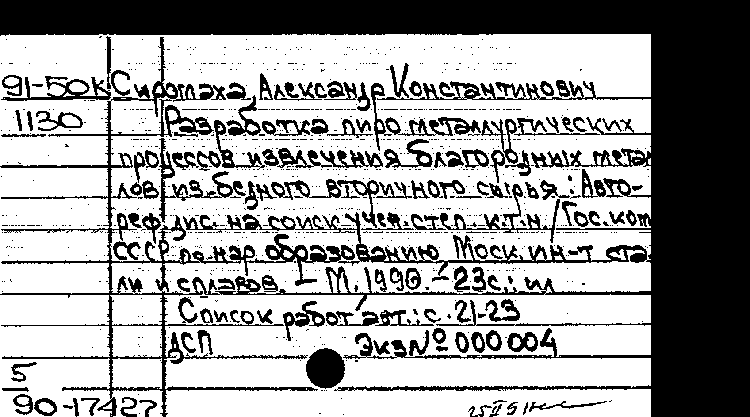 91-50К Сиротаха, Александр Константинович
1130 Разработка пирометаллургических
процессов извлечения благородных метал
лов из бедного вторичного сырья : Авто-
реф. дис. на соиск. учен. степ. к.т.н. / Гос. ком
СССР по нар. образованию, Моск. ин-т ста
ли и сплавов. – М. 1990. – 23с.: ил
Список работ авт.: с. 21-23
ДСП Экз № 000004
5
90-17427